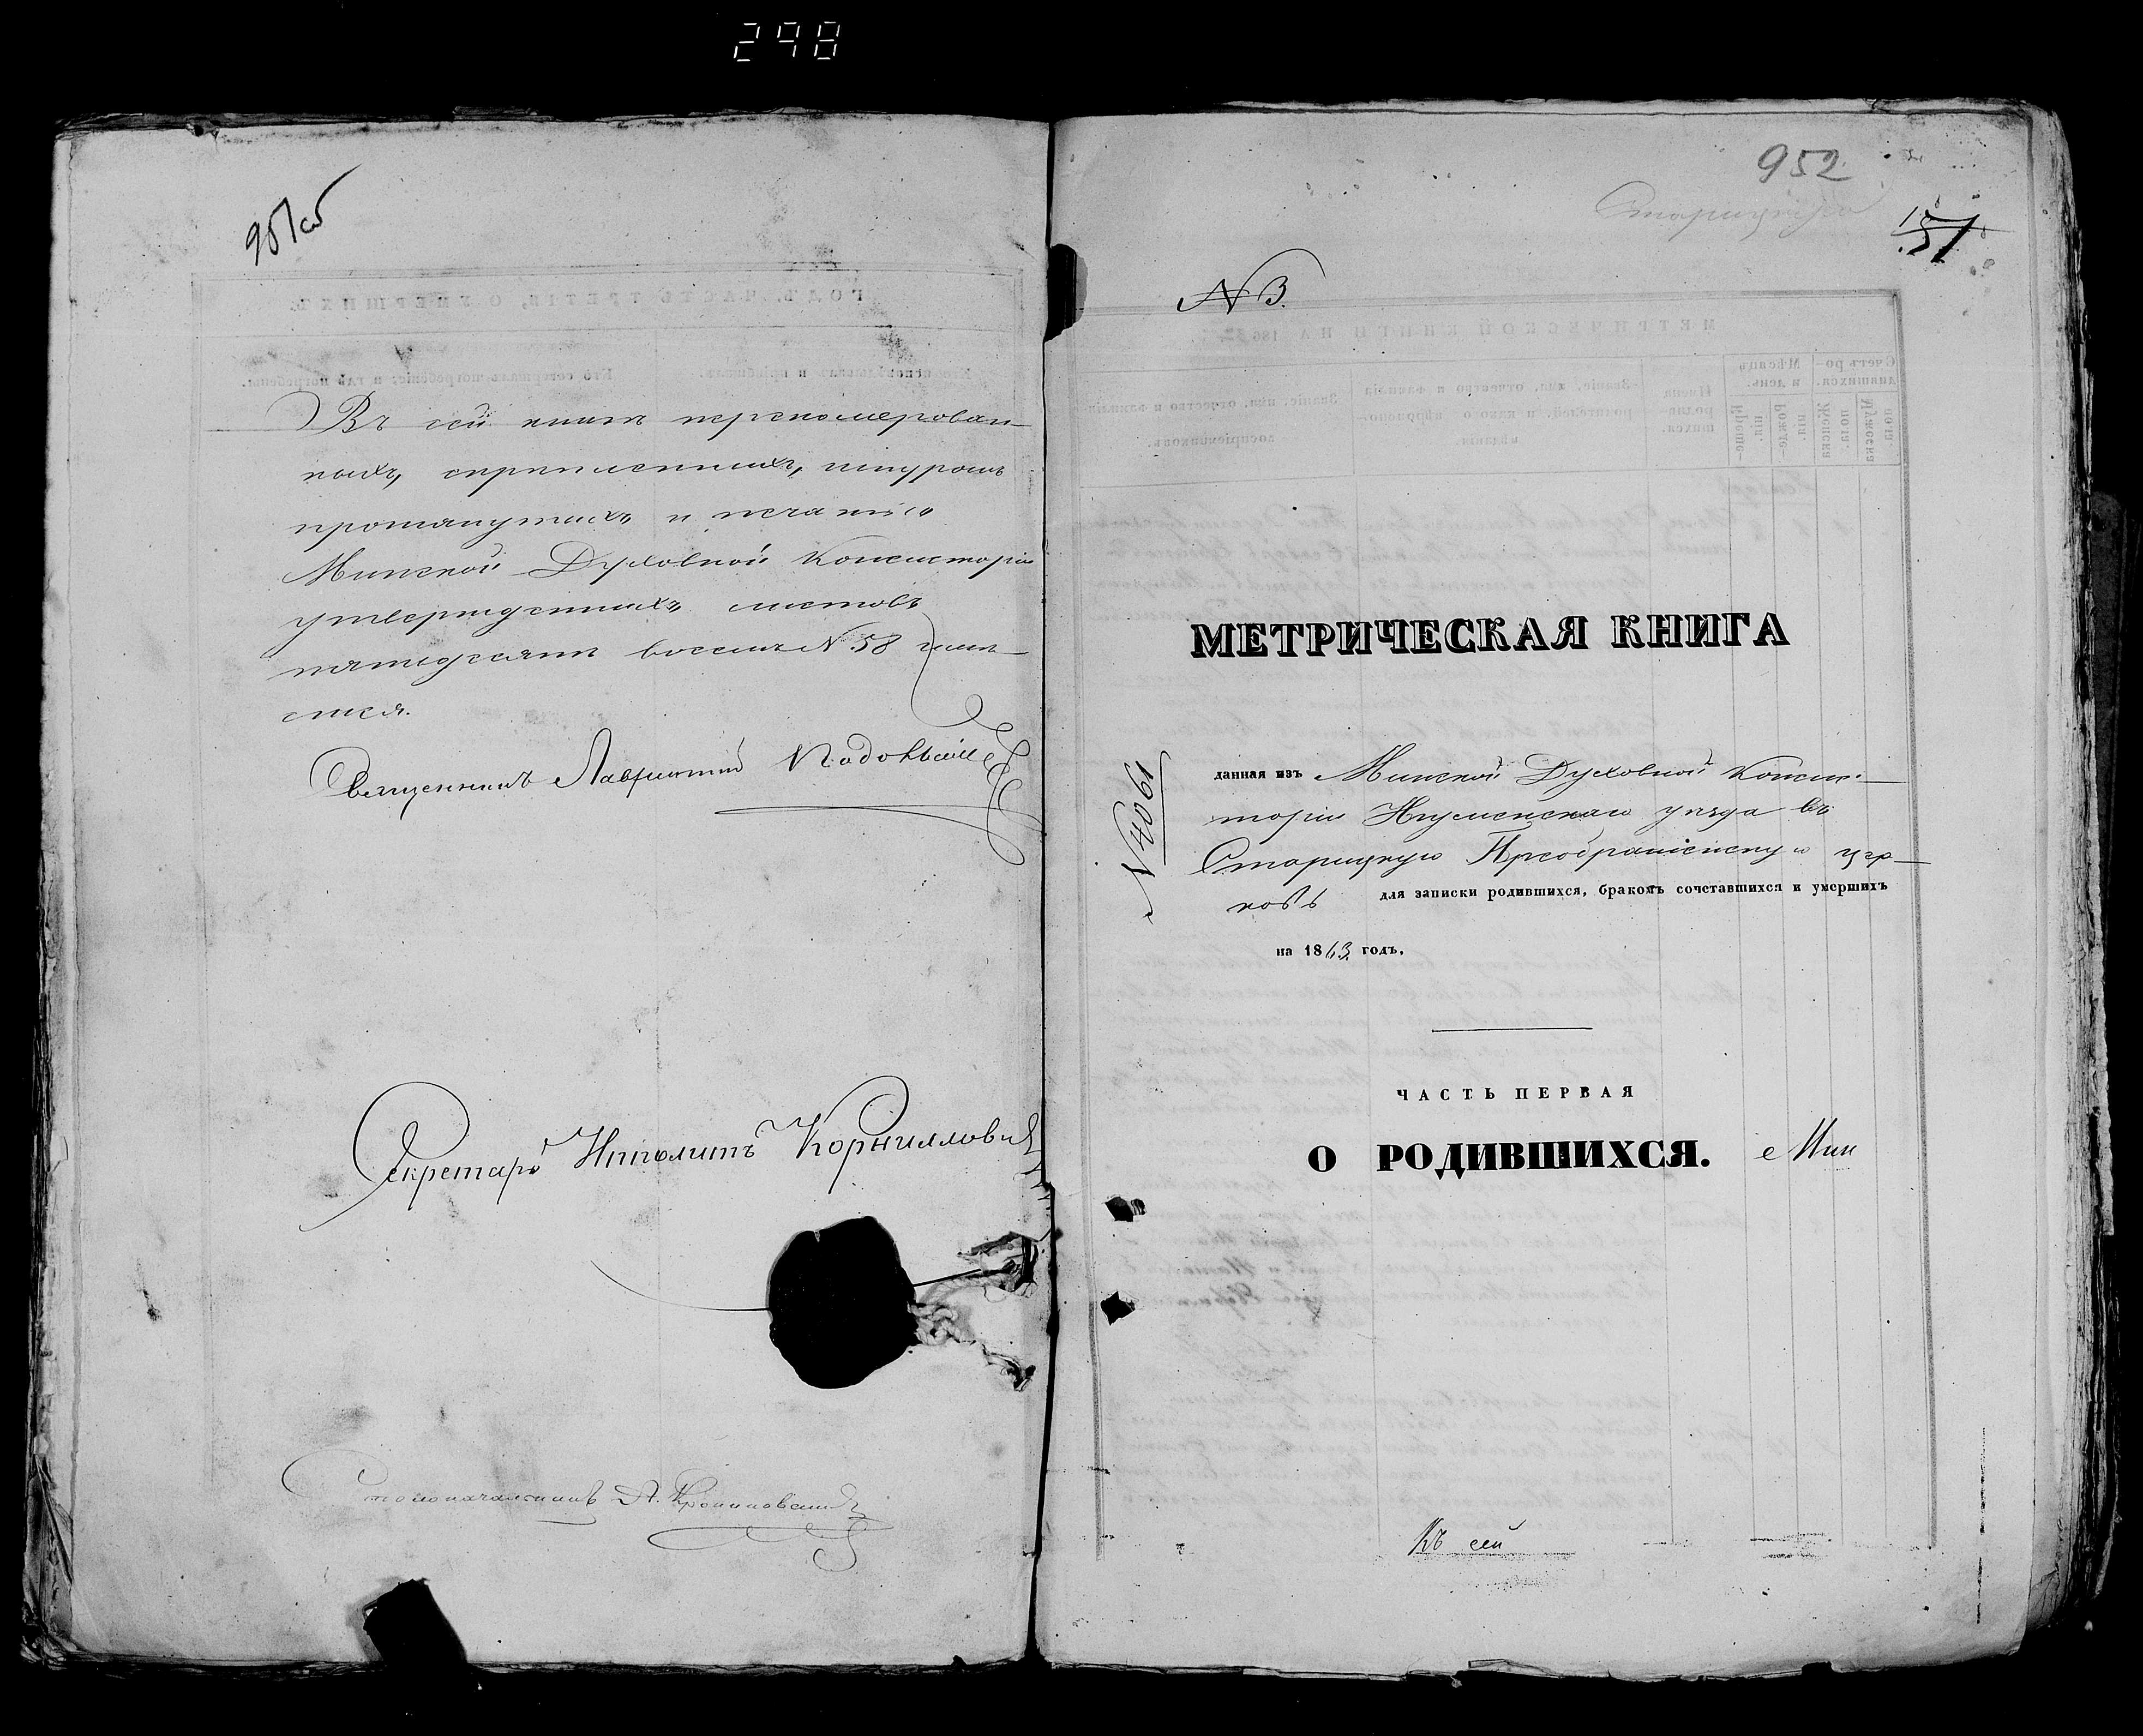 298
951об
Въ сей книгѣ перенумерован-
ныхъ, скрѣпленныхъ, шнуромъ
протянутыхъ и печатью
Минской Духовной Консисторіи
утвержденныхъ листовъ
пятьдесятъ восемь N 58 числи-
тся.
Священникъ Лаврентій
Секретарь Ипполитъ Корниллови
Столоначальникъ А.
952
Старицкую
51
N 3.
МЕТРИЧЕСКАЯ КНИГА
N 4061
данная изъ Минской Духовной Консис-
торіи Игуменскаго уѣзда въ
Старицкую Преображенскую цер-
ковь для записки родившихся, бракомъ сочетавшихся и умершихъ
на 1863 годъ.
ЧАСТЬ ПЕРВАЯ
О РОДИВШИХСЯ. Мин
Къ сей